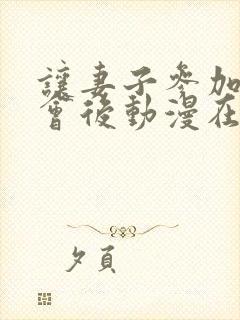 讓妻子參加
會後動漫在
夕頁